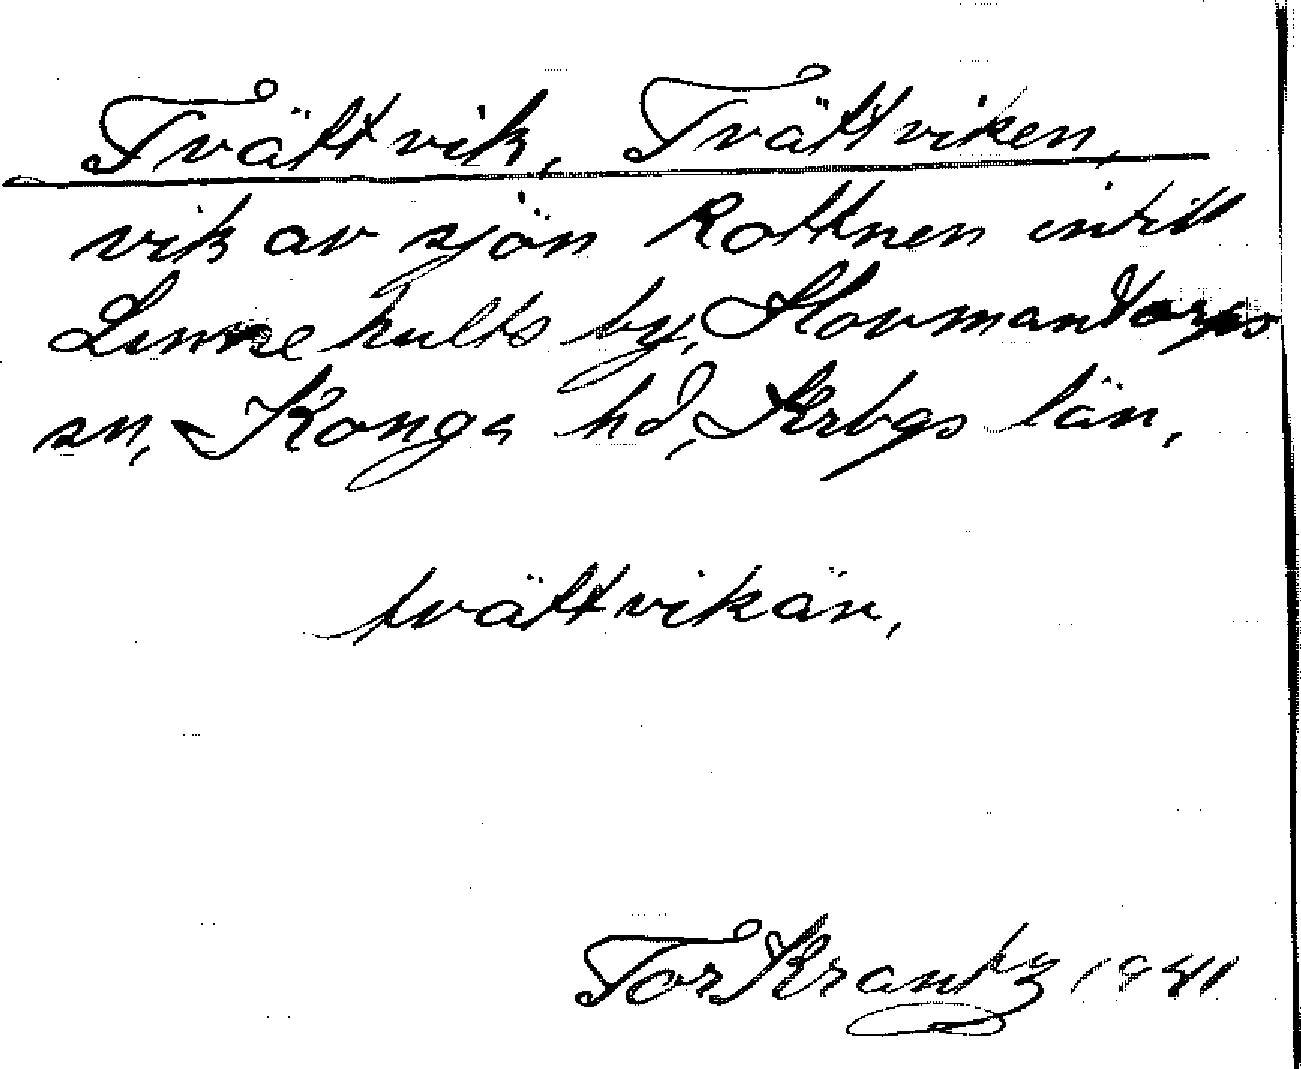 Tvättvik, Tvättviken,
vik av sjön Rottnen intill
Linnehults by, Hovmantorps
sn, Konga hd, Krbgs län,
tvättvikän,
Tor Krantz 1941